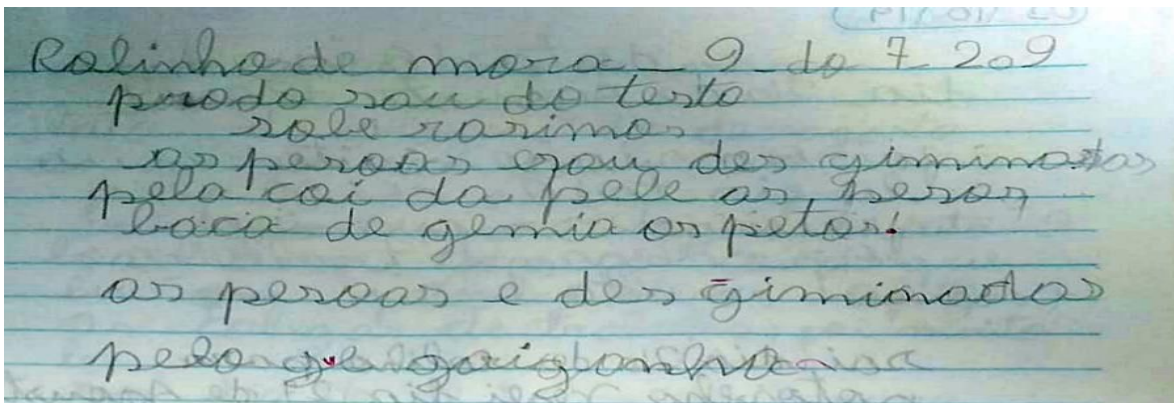 Rolinho de mora 9 do 7 209
prodo sau do testo
sole rasimos
as pesoas esou des giminadas
pela coi da pele as pesos
baca de gemia os petos.
as pesoas e des giminadas
pelo ge